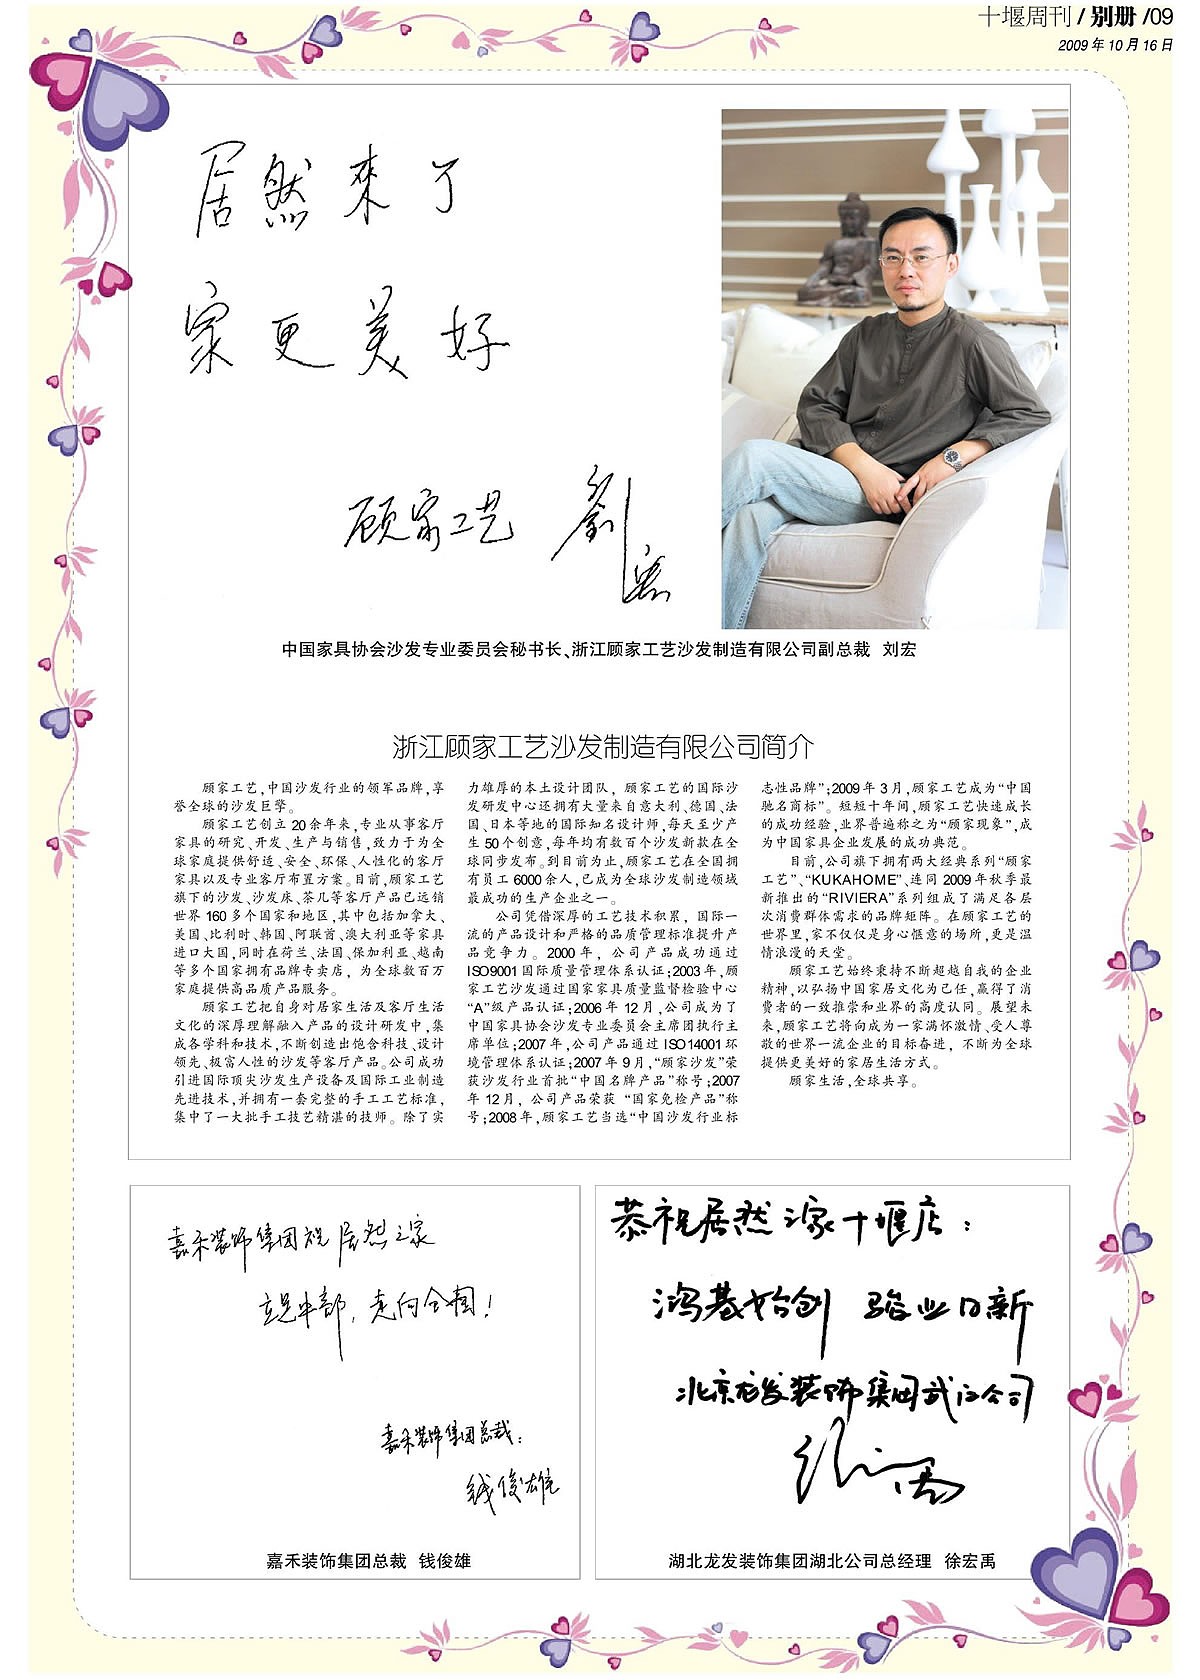 十堰周刊 / 别册 /09
2009年10月16日
居然來了
家更美好
顾家工艺 劉宏
中国家具协会沙发专业委员会秘书长、浙江顾家工艺沙发制造有限公司副总裁 刘宏
浙江顾家工艺沙发制造有限公司简介
顾家工艺,中国沙发行业的领军品牌,享
誉全球的沙发巨擎。
顾家工艺创立20余年来,专业从事客厅
家具的研究、开发、生产与销售,致力于为全
球家庭提供舒适、安全、环保、人性化的客厅
家具以及专业客厅布置方案。目前,顾家工艺
旗下的沙发、沙发床、茶几等客厅产品已远销
世界160多个国家和地区,其中包括加拿大、
美国、比利时、韩国、阿联酋、澳大利亚等家具
进口大国,同时在荷兰、法国、保加利亚、越南
等多个国家拥有品牌专卖店,为全球数百万
家庭提供高品质产品服务。
顾家工艺把自身对居家生活及客厅生活
文化的深厚理解融入产品的设计研发中,集
成各学科和技术,不断创造出饱含科技、设计
领先、极富人性的沙发等客厅产品。公司成功
引进国际顶尖沙发生产设备及国际工业制造
先进技术,并拥有一套完整的手工工艺标准,
集中了一大批手工技艺精湛的技师。除了实
力雄厚的本土设计团队,顾家工艺的国际沙
发研发中心还拥有大量来自意大利、德国、法
国、日本等地的国际知名设计师,每天至少产
生50个创意,每年均有数百个沙发新款在全
球同步发布。到目前为止,顾家工艺在全国拥
有员工6000余人,已成为全球沙发制造领域
最成功的生产企业之一。
公司凭借深厚的工艺技术积累,国际一
流的产品设计和严格的品质管理标准提升产
品竞争力。2000年,公司产品成功通过
ISO9001国际质量管理体系认证;2003年,顾
家工艺沙发通过国家家具质量监督检验中心
“A”级产品认证;2006年12月,公司成为了
中国家具协会沙发专业委员会主席团执行主
席单位;2007年,公司产品通过ISO14001环
境管理体系认证;2007年9月,“顾家沙发”荣
获沙发行业首批“中国名牌产品”称号;2007
年12月,公司产品荣获“国家免检产品”称
号;2008年,顾家工艺当选“中国沙发行业标
志性品牌”;2009年3月,顾家工艺成为“中国
驰名商标”。短短十年间,顾家工艺快速成长
的成功经验,业界普遍称之为“顾家现象”,成
为中国家具企业发展的成功典范。
目前,公司旗下拥有两大经典系列“顾家
工艺”、“KUKAHOME”、连同2009年秋季最
新推出的“RIVIERA”系列组成了满足各层
次消费群体需求的品牌矩阵。在顾家工艺的
世界里,家不仅仅是身心惬意的场所,更是温
情浪漫的天堂。
顾家工艺始终秉持不断超越自我的企业
精神,以弘扬中国家居文化为己任,赢得了消
费者的一致推崇和业界的高度认同。展望未
来,顾家工艺将向成为一家满怀激情、受人尊
敬的世界一流企业的目标奋进,不断为全球
提供更美好的家居生活方式。
顾家生活,全球共享。
嘉禾装饰集团祝居然之家
立足中部,走向全国!
嘉禾装饰集团总裁:
钱俊雄
嘉禾装饰集团总裁 钱俊雄
恭祝居然之家十堰店:
鸿基始创 骏业日新
北京龙发装饰集团武汉公司
湖北龙发装饰集团湖北公司总经理 徐宏禹